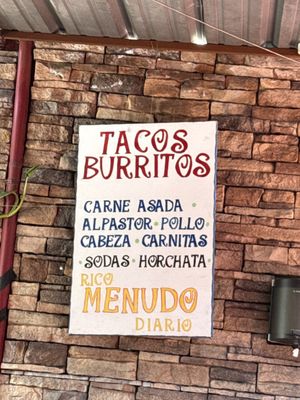 TACOS
BURRITOS
CARNE ASADA
ALPASTOR • POLLO
CABEZA • CARNITAS
• SODAS • HORCHATA •
RICO
MENUDO
DIARIO